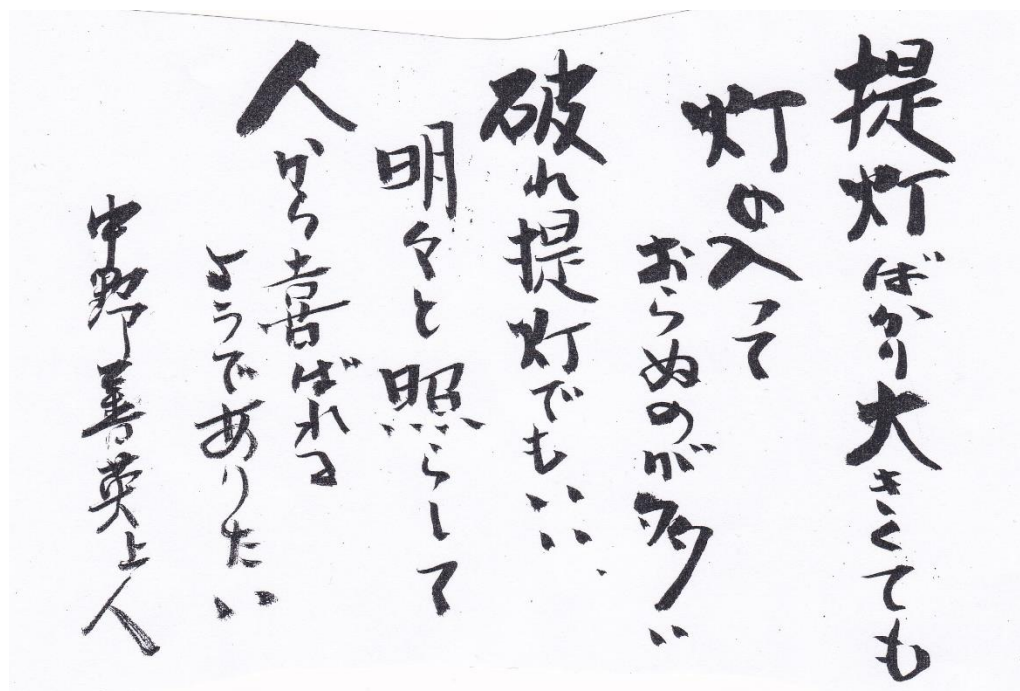 提灯ばかり大きくても
灯の入って
おらぬのが多い
破れ提灯でもいい、
明々と照らして
人から喜ばれる
ようでありたい
中野善英上人